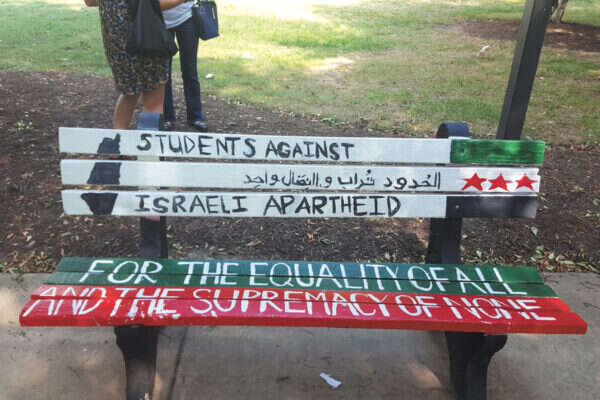 STUDENTS AGAINST
الحُدود تُراب و النِضال واحِد
ISRAELI APARTHEID
FOR THE EQUALITY OF ALL
AND THE SUPREMACY OF NONE